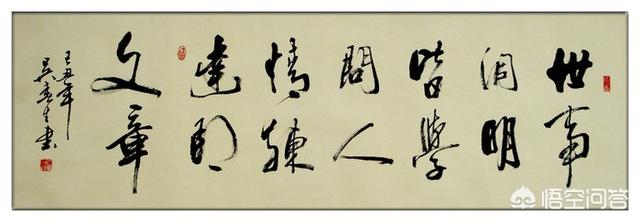 世事
洞明
皆學
問人
情練
達即
文章
己丑年
悟空问答